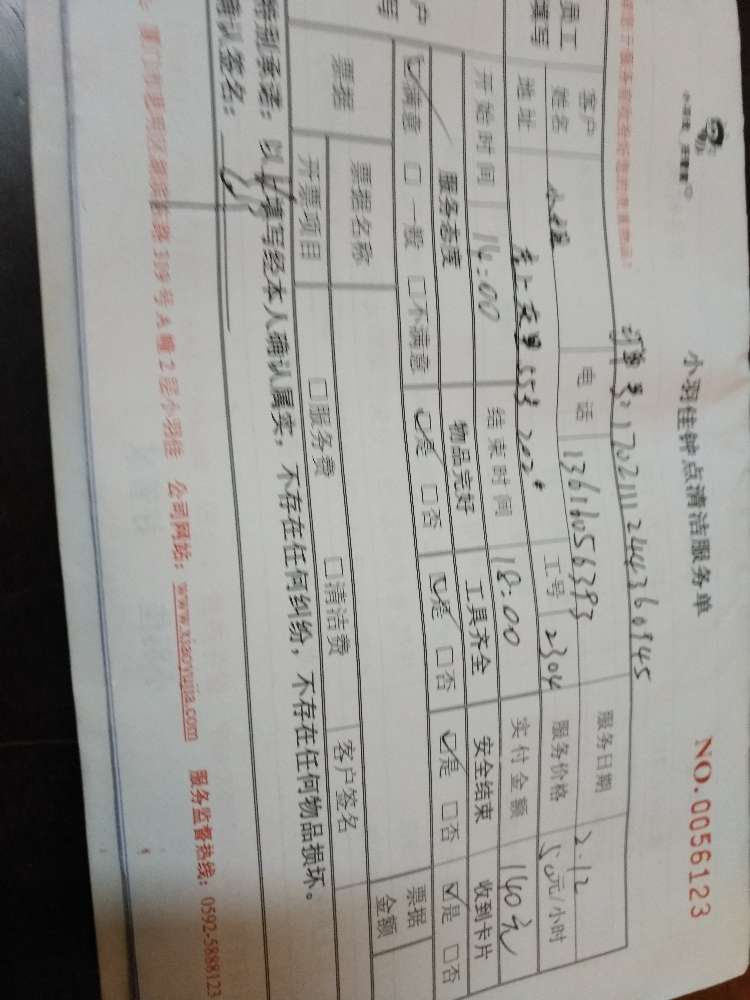 小羽佳钟点清洁服务单
NO.0056123
订单号:1702111244360945
员工填写
客户姓名 小姐 电话 13616056393 服务日期 2.12
地址 55号 202# 工号 2304 服务价格 50元/小时
开始时间 14:00 结束时间 18:00 实付金额 140元
户写
服务态度 物品完好 工具齐全 安全结束 收到卡片
☑满意 □一般 □不满意 ☑是 □否 ☑是 □否 ☑是 □否 ☑是 □否
票据 票据名称 票据金额
开票项目 □服务费 □清洁费 客户签名
特别承诺:以上填写经本人确认属实,不存在任何纠纷,不存在任何物品损坏。
确认签名:
310号A幢2层小羽佳 公司网站:www.xiaoyujia.com 服务监督热线:0592-5888123